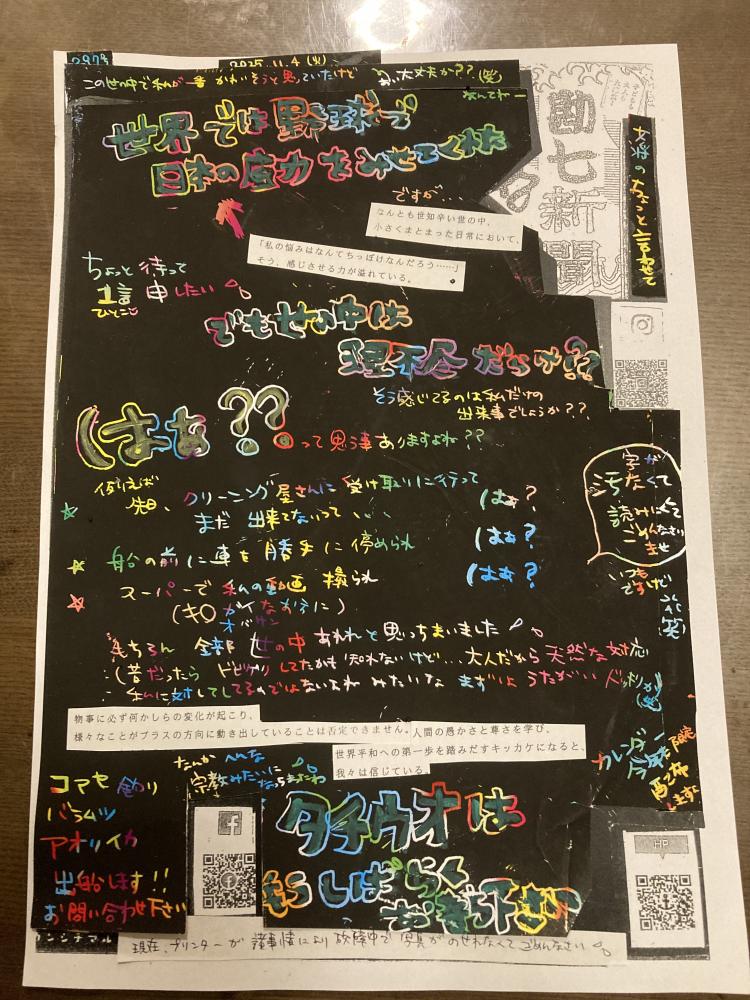 297号
2025.11.4(火)
この世の中で私が一番かわいそうと思っていたけど
お、大丈夫か??(笑)
なんてねー
勘七新聞
女将のちょっと言わせて
世界では野球で
日本の底力をみせてくれた
ですが...
なんとも世知辛い世の中、
小さくまとまった日常において、
「私の悩みはなんてちっぽけなんだろう……」
そう、感じさせる力が溢れている。
ちょっと待って
1言申したい
ひとこと
でもせの中は
理不尽だらけ!?
そう感じてるのは私だけの
出来事でしょうか??
はぁ??
って思う事ありますよね??
例えば
先日、クリーニング屋さんに受け取りに行って
まだ出来てないって、、、
はぁ?
船の前に車を勝手に停められ
はぁ?
スーパーで私の動画撮られ
はぁ?
オバサン
もちろん全部世の中あれれと思っちまいました
(昔だったらドヒゲリしてたかも知れないけど...大人だから天然な対応
私に対してしてるのではないよねみたいな
字が
汚なくて
読みにくくて
ごめんなさいませ
いつも
ですけど
(笑)
物事に必ず何かしらの変化が起こり、
様々なことがプラスの方向に動き出していることは否定できません。
人間の愚かさと尊さを学び、
世界平和への第一歩を踏みだすキッカケになると、
我々は信じている。
なんかへんな
宗教みたいに
なっちまったわ
カレンダー
今年も
配布
します
コマセ釣り
バラムツ
アオリイカ
出船します!!
お問い合わせ下さい
タチウオは
もうしばらく
お待ち下さい
HP
現在、プリンターが諸事情により故障中で写真がのせれなくてごめんなさい